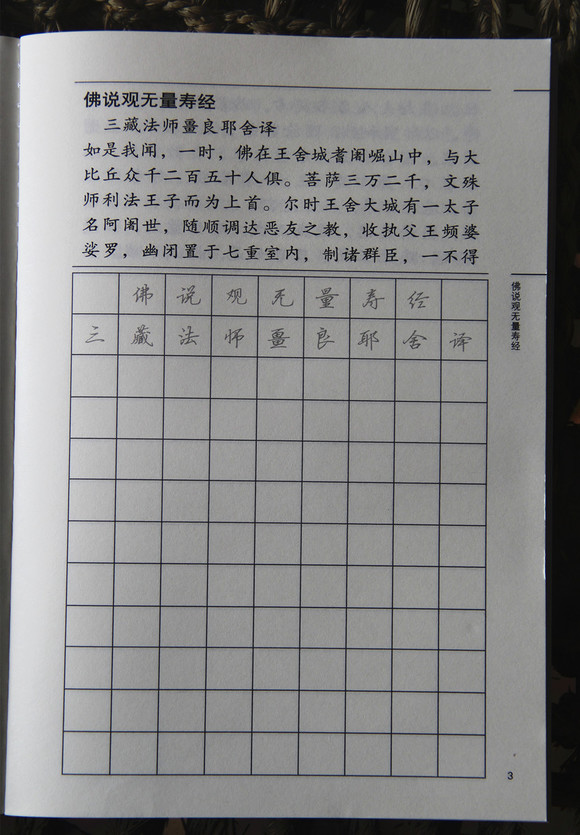 佛说观无量寿经
三藏法师畺良耶舍译
如是我闻，一时，佛在王舍城耆阇崛山中，与大
比丘众千二百五十人俱。菩萨三万二千，文殊
师利法王子而为上首。尔时王舍大城有一太子
名阿阇世，随顺调达恶友之教，收执父王频婆
娑罗，幽闭置于七重室内，制诸群臣，一不得
佛说观无量寿经
三藏法师畺良耶舍译
佛说观无量寿经
3